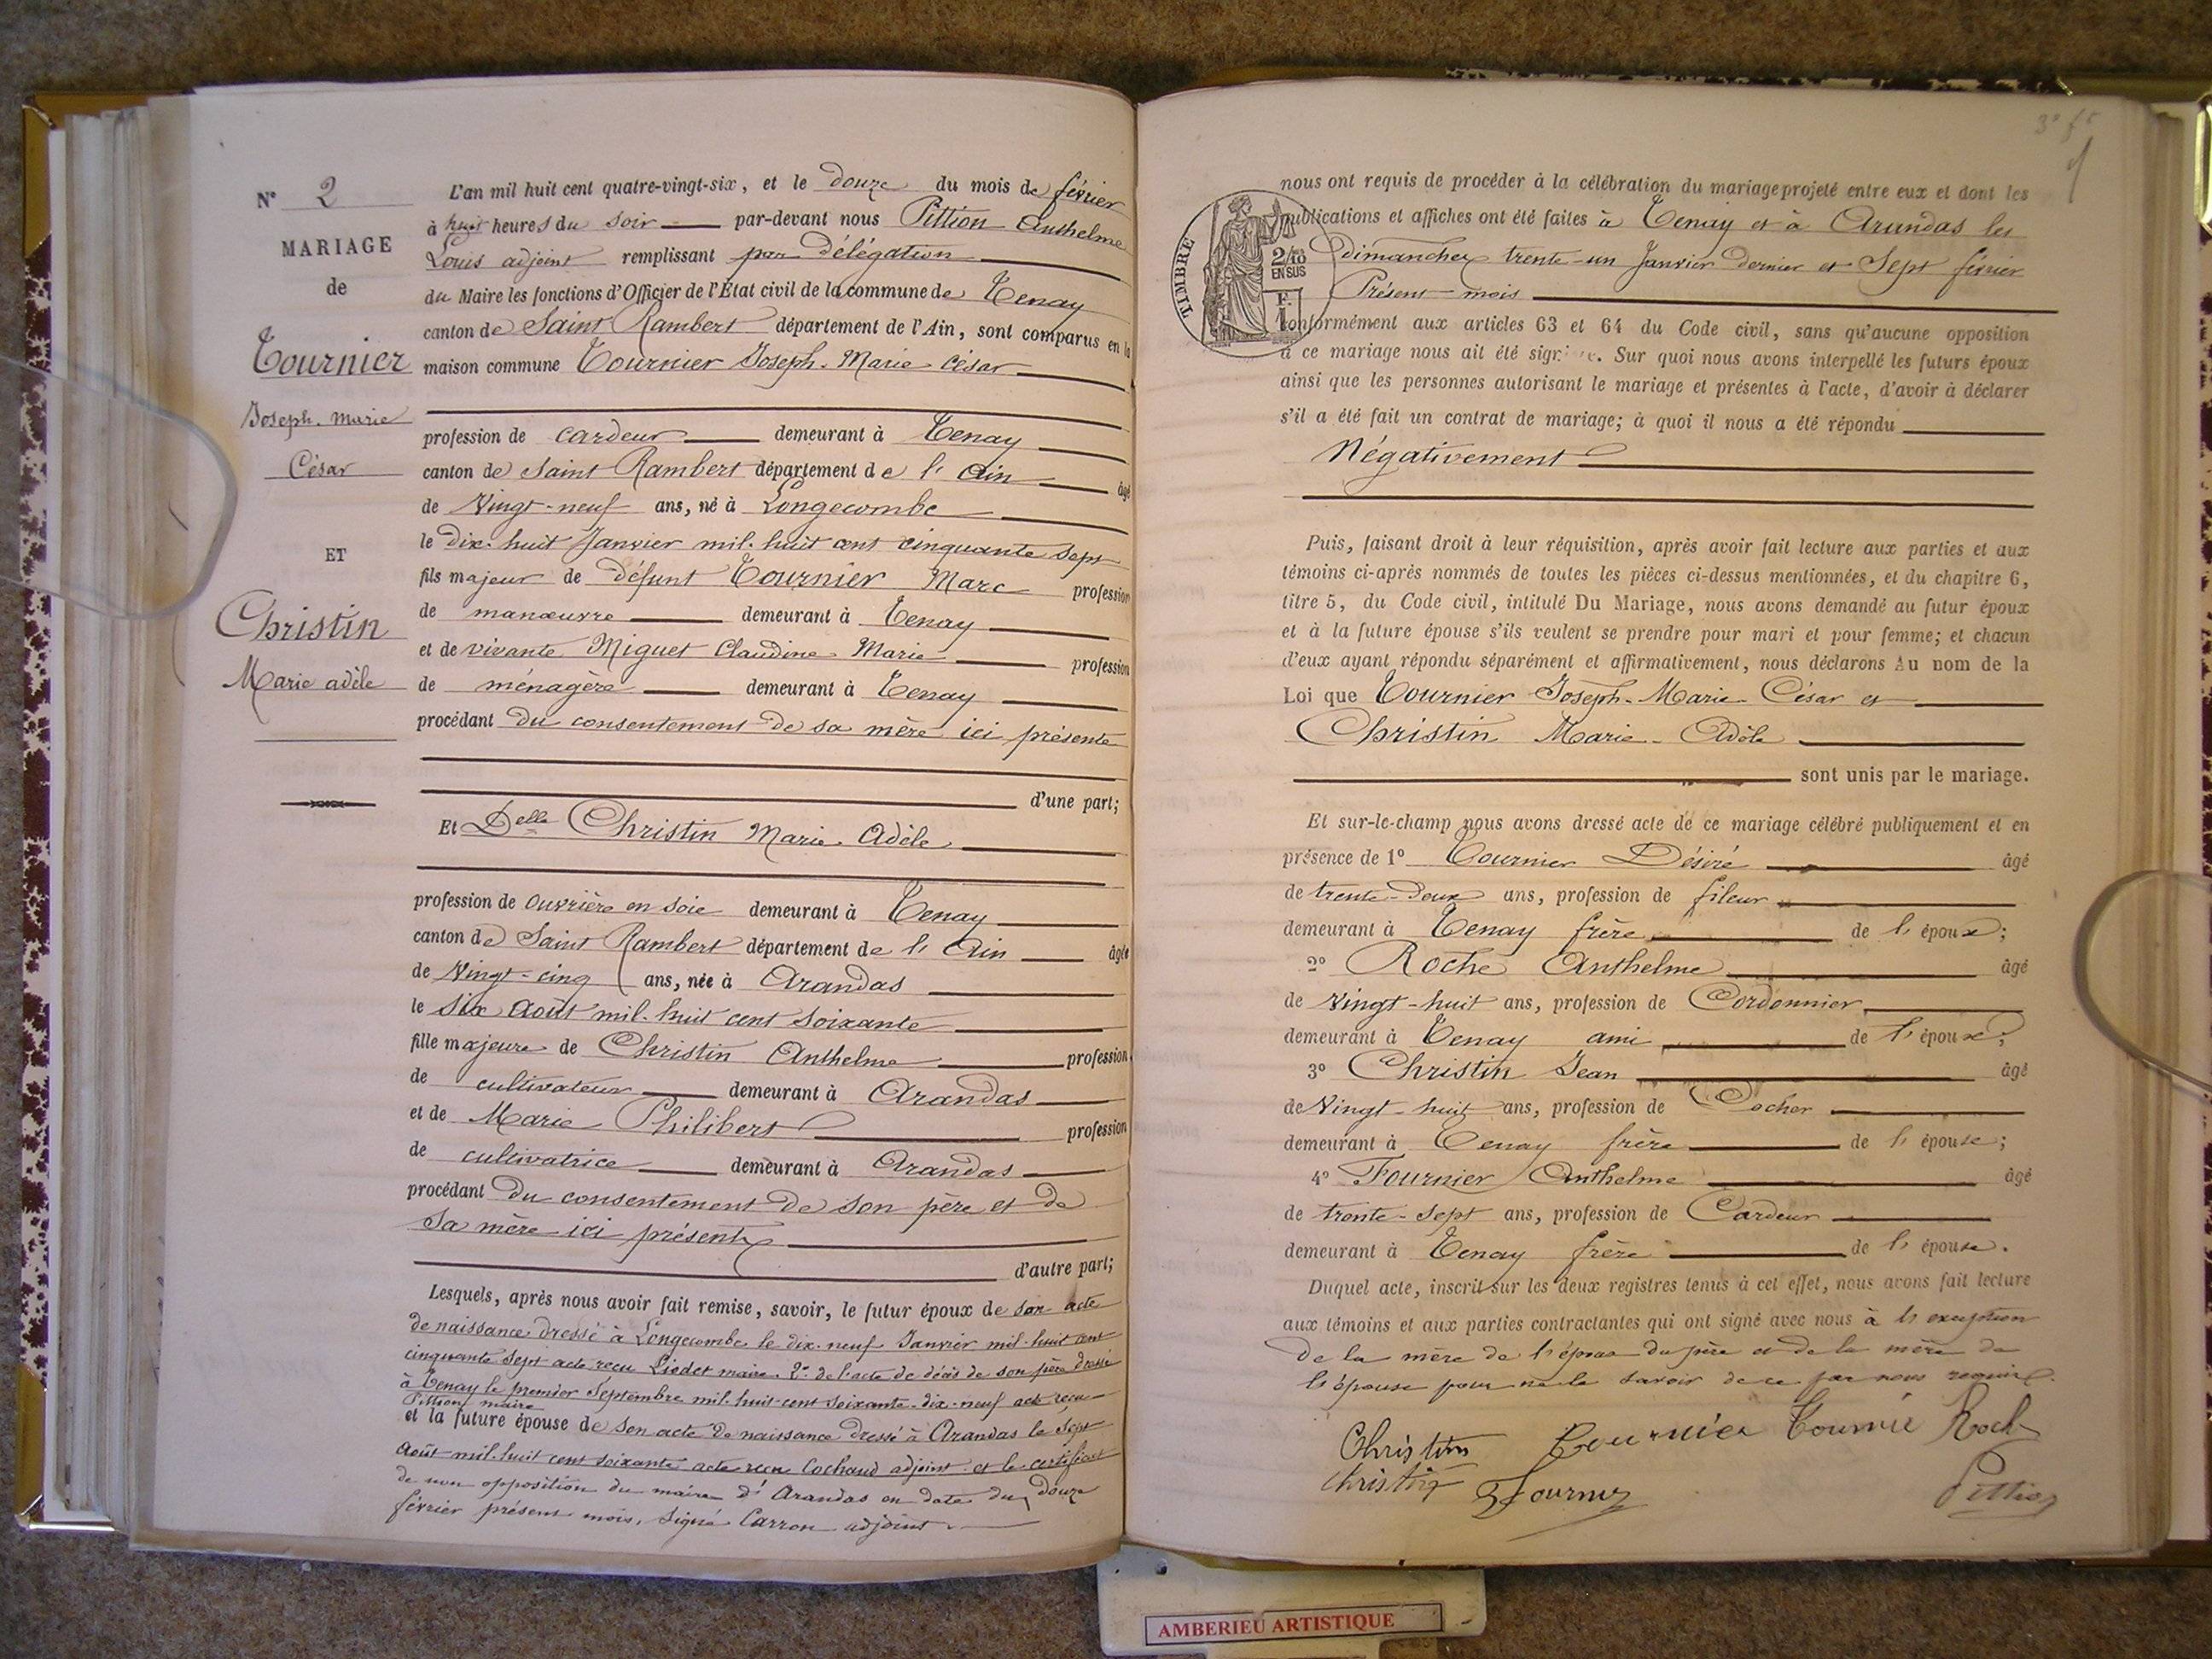 N° 2
MARIAGE
de
Tournier
Joseph-Marie
César
ET
Christin
Marie adèle
L'an mil huit cent quatre-vingt-six, et le douze du mois de février
à huit heures du soir par-devant nous Pittion Anthelme
Louis adjoint remplissant par délégation
du Maire les fonctions d'Officier de l'État civil de la commune de Tenay
canton de Saint Rambert département de l'Ain, sont comparus en la
maison commune Tournier Joseph-Marie César
profession de cardeur demeurant à Tenay
canton de Saint Rambert département de l'Ain âgé
de Vingt-neuf ans, né à Longecombe
le dix-huit Janvier mil-huit cent cinquante sept
fils majeur de défunt Tournier Marc profession
de manœuvre demeurant à Tenay
et de vivante Miguet Claudine Marie profession
de ménagère demeurant à Tenay
procédant du consentement de sa mère ici présente
d'une part;
Et Delle Christin Marie-Adèle
profession de ouvrière en soie demeurant à Tenay
canton de Saint Rambert département de l'Ain âgée
de Vingt-cinq ans, née à Arandas
le six Août mil-huit cent soixante
fille majeure de Christin Anthelme profession
de cultivateur demeurant à Arandas
et de Marie Philibert profession
de cultivatrice demeurant à Arandas
procédant du consentement de son père et de
sa mère ici présents
d'autre part;
Lesquels, après nous avoir fait remise, savoir, le futur époux de son acte
de naissance dressé à Longecombe le dix-neuf Janvier mil-huit cent
cinquante sept acte reçu Liodet maire. 2° de l'acte de décès de son père dressé
à Tenay le premier Septembre mil-huit-cent soixante-dix-neuf acte reçu
Pittion maire
et la future épouse de son acte de naissance dressé à Arandas le Sept
Août mil-huit cent soixante acte reçu Cochaud adjoint et le certificat
de non opposition du maire d'Arandas en date du douze
février présent mois, signé Carron adjoint
3e ft
TIMBRE
2/10
EN SUS
F.
1
nous ont requis de procéder à la célébration du mariage projeté entre eux et dont les
publications et affiches ont été faites à Tenay et à Arandas les
dimanches trente-un Janvier dernier et Sept février
Présent mois
conformément aux articles 63 et 64 du Code civil, sans qu'aucune opposition
à ce mariage nous ait été signifiée. Sur quoi nous avons interpellé les futurs époux
ainsi que les personnes autorisant le mariage et présentes à l'acte, d'avoir à déclarer
s'il a été fait un contrat de mariage; à quoi il nous a été répondu
Négativement
Puis, faisant droit à leur réquisition, après avoir fait lecture aux parties et aux
témoins ci-après nommés de toutes les pièces ci-dessus mentionnées, et du chapitre 6,
titre 5, du Code civil, intitulé Du Mariage, nous avons demandé au futur époux
et à la future épouse s'ils veulent se prendre pour mari et pour femme; et chacun
d'eux ayant répondu séparément et affirmativement, nous déclarons Au nom de la
Loi que Tournier Joseph-Marie-César et
Christin Marie-Adèle
sont unis par le mariage.
Et sur-le-champ nous avons dressé acte de ce mariage célébré publiquement et en
présence de 1° Tournier Désiré âgé
de trente-deux ans, profession de fileur
demeurant à Tenay frère de l'époux;
2° Roche Anthelme âgé
de Vingt-huit ans, profession de Cordonnier
demeurant à Tenay ami de l'époux;
3° Christin Jean âgé
de Vingt-huit ans, profession de Cocher
demeurant à Tenay frère de l'épouse;
4° Fournier Anthelme âgé
de trente-sept ans, profession de Cardeur
demeurant à Tenay frère de l'épouse.
Duquel acte, inscrit sur les deux registres tenus à cet effet, nous avons fait lecture
aux témoins et aux parties contractantes qui ont signé avec nous à l'exception
de la mère de l'époux du père et de la mère de
l'épouse pour ne le savoir de ce par nous requis.
Christin Tournier Tournié Roch
Christin Fournier Pittion
AMBERIEU ARTISTIQUE